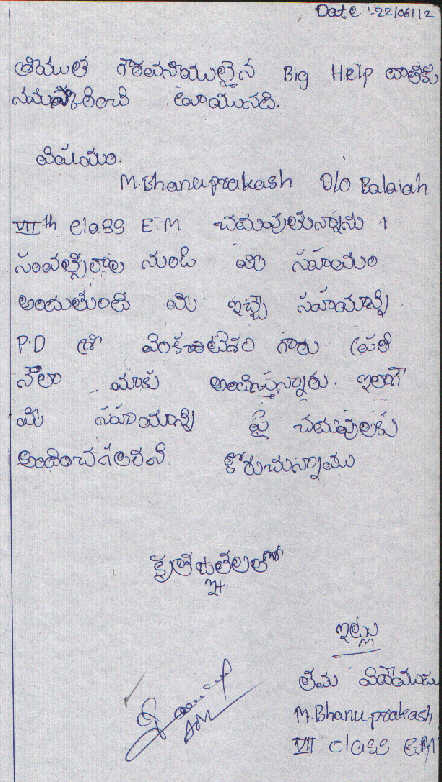 Date :-22/06/12
శ్రీయుత గౌరవనీయులైన Big Help వారికి
నమస్కరించి వ్రాయునది.
విషయం.
M.Bhanuprakash D/O Balaiah
VIIth class E M చదువుతున్నాను 1
సంవత్సరాల నుండి మీ సహాయం
అందుతుంది మీ ఇచ్చే సహాయాన్ని
P.D శ్రీ వెంకటేశం గారు ప్రతీ
నెలా మాకు అందిస్తున్నారు. ఇలాగే
మీ సహాయాన్ని పై చదువులకు
అందించగలరని కోరుచున్నాము
కృతజ్ఞతలతో
ఇట్లు
తమ విధేయుడు
M.Bhanuprakash
VII class EM